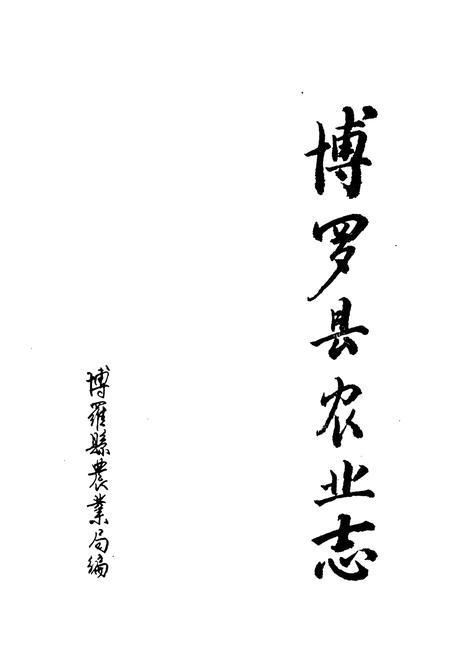 博罗县农业志
博羅縣農業局編